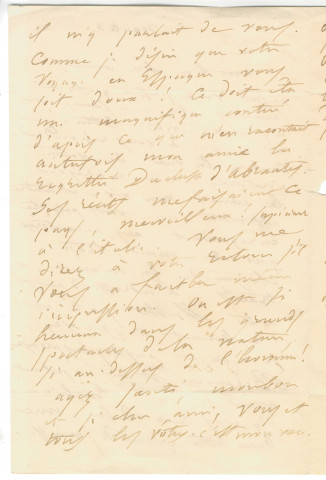 il m'y parlait de vous.
Comme je désire que votre
voyage en Espagne vous
soit doux ! Ce doit être
un magnifique contrée
d'après ce que m'en racontait
autrefois mon amie la
Duchesse d'Abrantès.
Ses récits me faisaient ce
pays, merveilleux, supérieur
à l'Italie. Vous me
direz à votre retour s'il
vous a fait la même
impression. On est si
heureux dans les grands
spectacles de la nature
si au-dessus de l'homme !
ayez santé, bonheur
cher ami, vous et
tous les vôtres. c'est mon